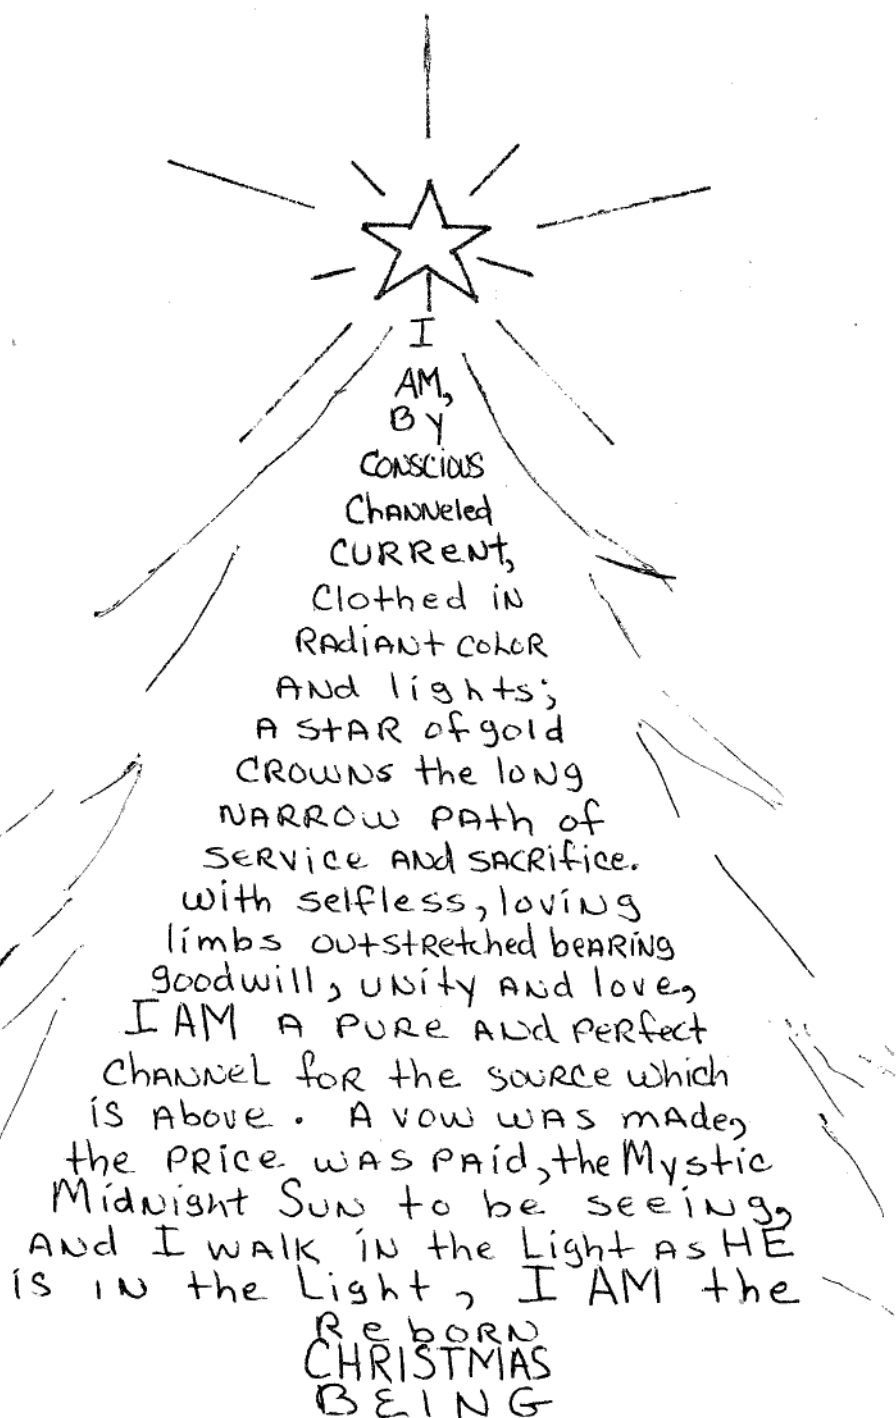 I
AM,
By
CONSCIOUS
ChANNeled
CURReNt,
Clothed iN
RAdiANt COLOR
ANd lights;
A StAR of gold
CROWNS the loNg
NARROW PAth of
SERVice ANd SACRifice.
With selfless, loviNg
limbs outstRetched beARiNg
goodwill, uNity ANd love,
I AM A PURe ANd PeRfect
ChANNeL foR the souRce which
is Above. A VOW WAS mAde,
the PRice WAS PAid, the Mystic
MidNight SuN to be seeiNg,
ANd I WAlk iN the Light As HE
is iN the Light, I AM the
ReboRN
CHRISTMAS
BEING